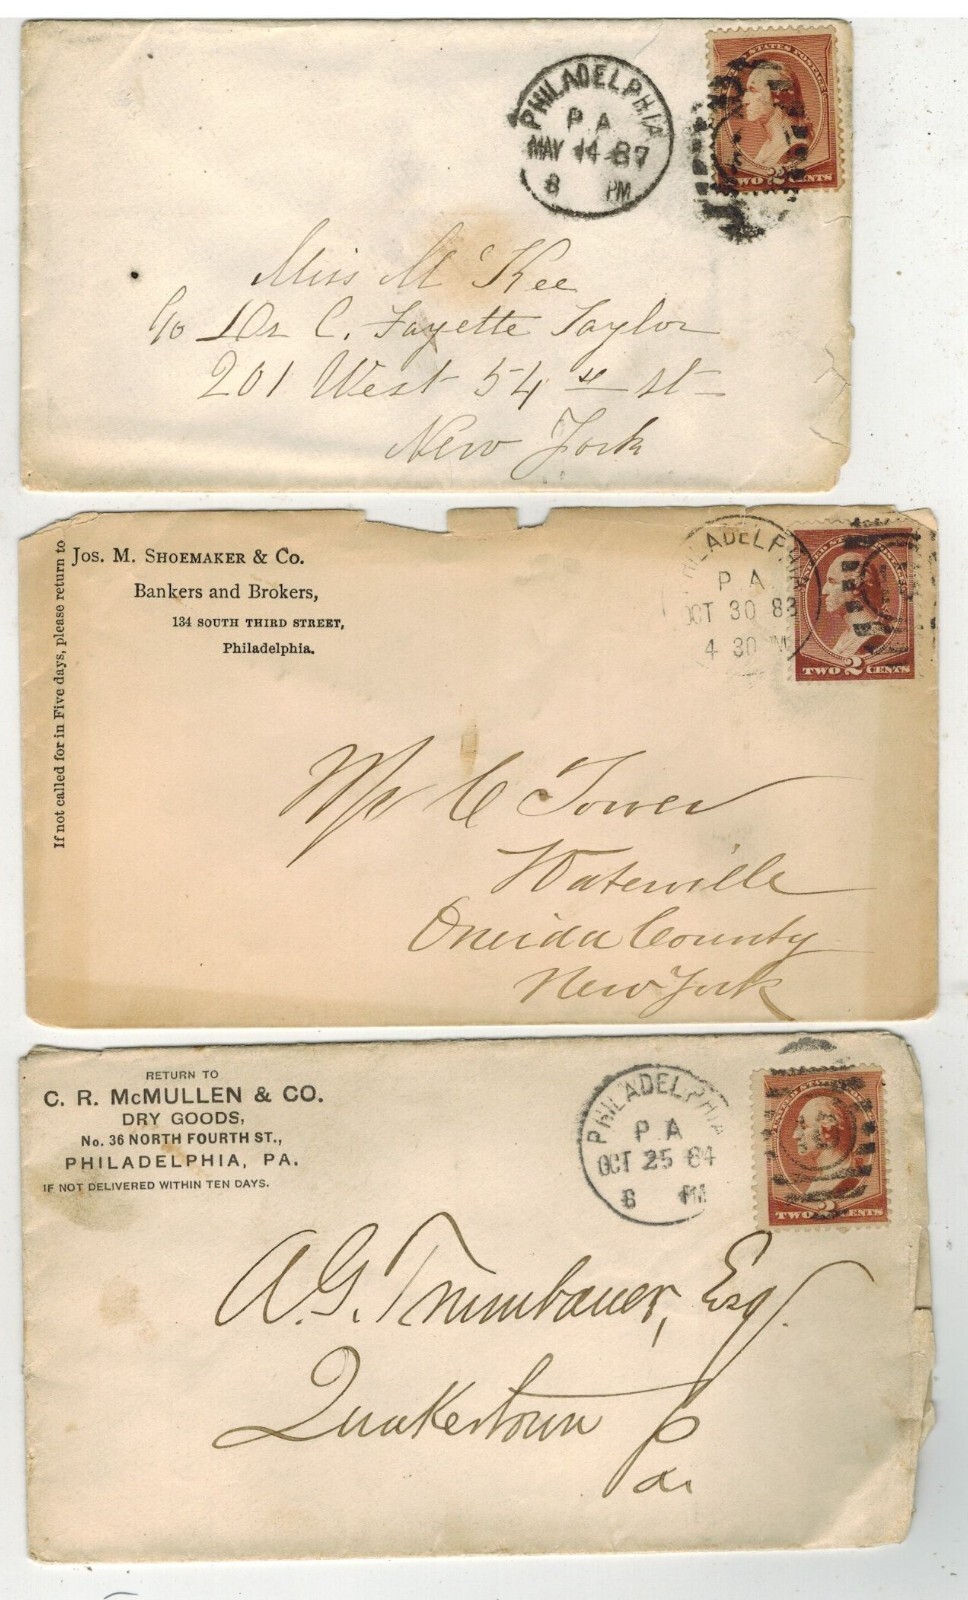 PHILADELPHIA
PA
MAY 14 87
8 PM
UNITED STATES POSTAGE
TWO 2 CENTS
Miss McKee
c/o Dr C. Fayette Taylor
201 West 54th st
New York
If not called for in Five days, please return to
Jos. M. Shoemaker & Co.
Bankers and Brokers,
134 SOUTH THIRD STREET,
Philadelphia.
PHILADELPHIA
PA
OCT 30 83
4 30 PM
UNITED STATES POSTAGE
TWO 2 CENTS
C Tower
Waterville
Oneida County
New York
RETURN TO
C. R. McMULLEN & CO.
DRY GOODS,
No. 36 NORTH FOURTH ST.,
PHILADELPHIA, PA.
IF NOT DELIVERED WITHIN TEN DAYS.
PHILADELPHIA
PA
OCT 25 84
6 PM
TWO 2 CENTS
A.G. Trumbauer, Esq.
Quakertown
Pa